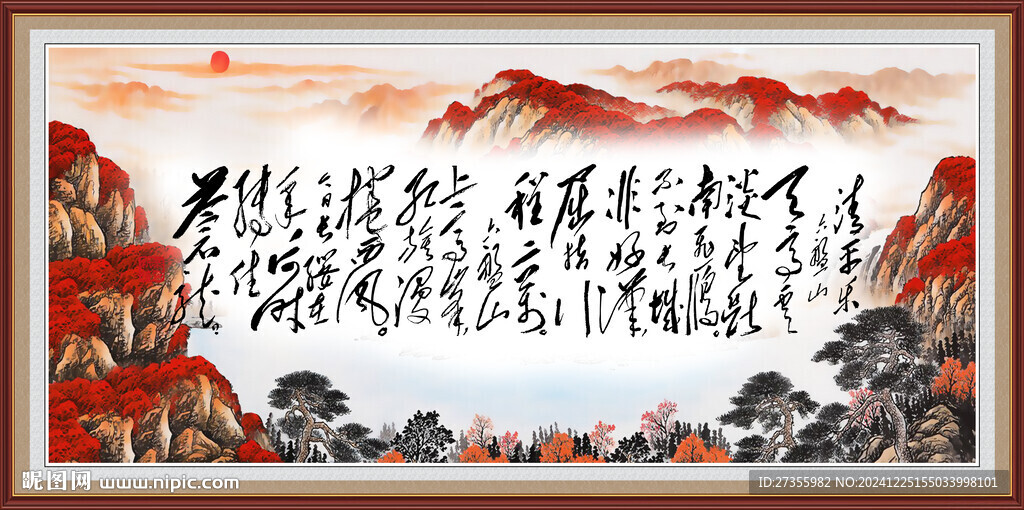 清平乐
六盤山
天高雲
淡望断
南飛雁。
不到长城
非好漢，
屈指行
程二萬。
六盤山
上高峯，
红旗漫
捲西风。
今日长缨在
手，何时
缚住
苍龙。
昵图网 www.nipic.com
ID:27355982 NO:20241225155033998101